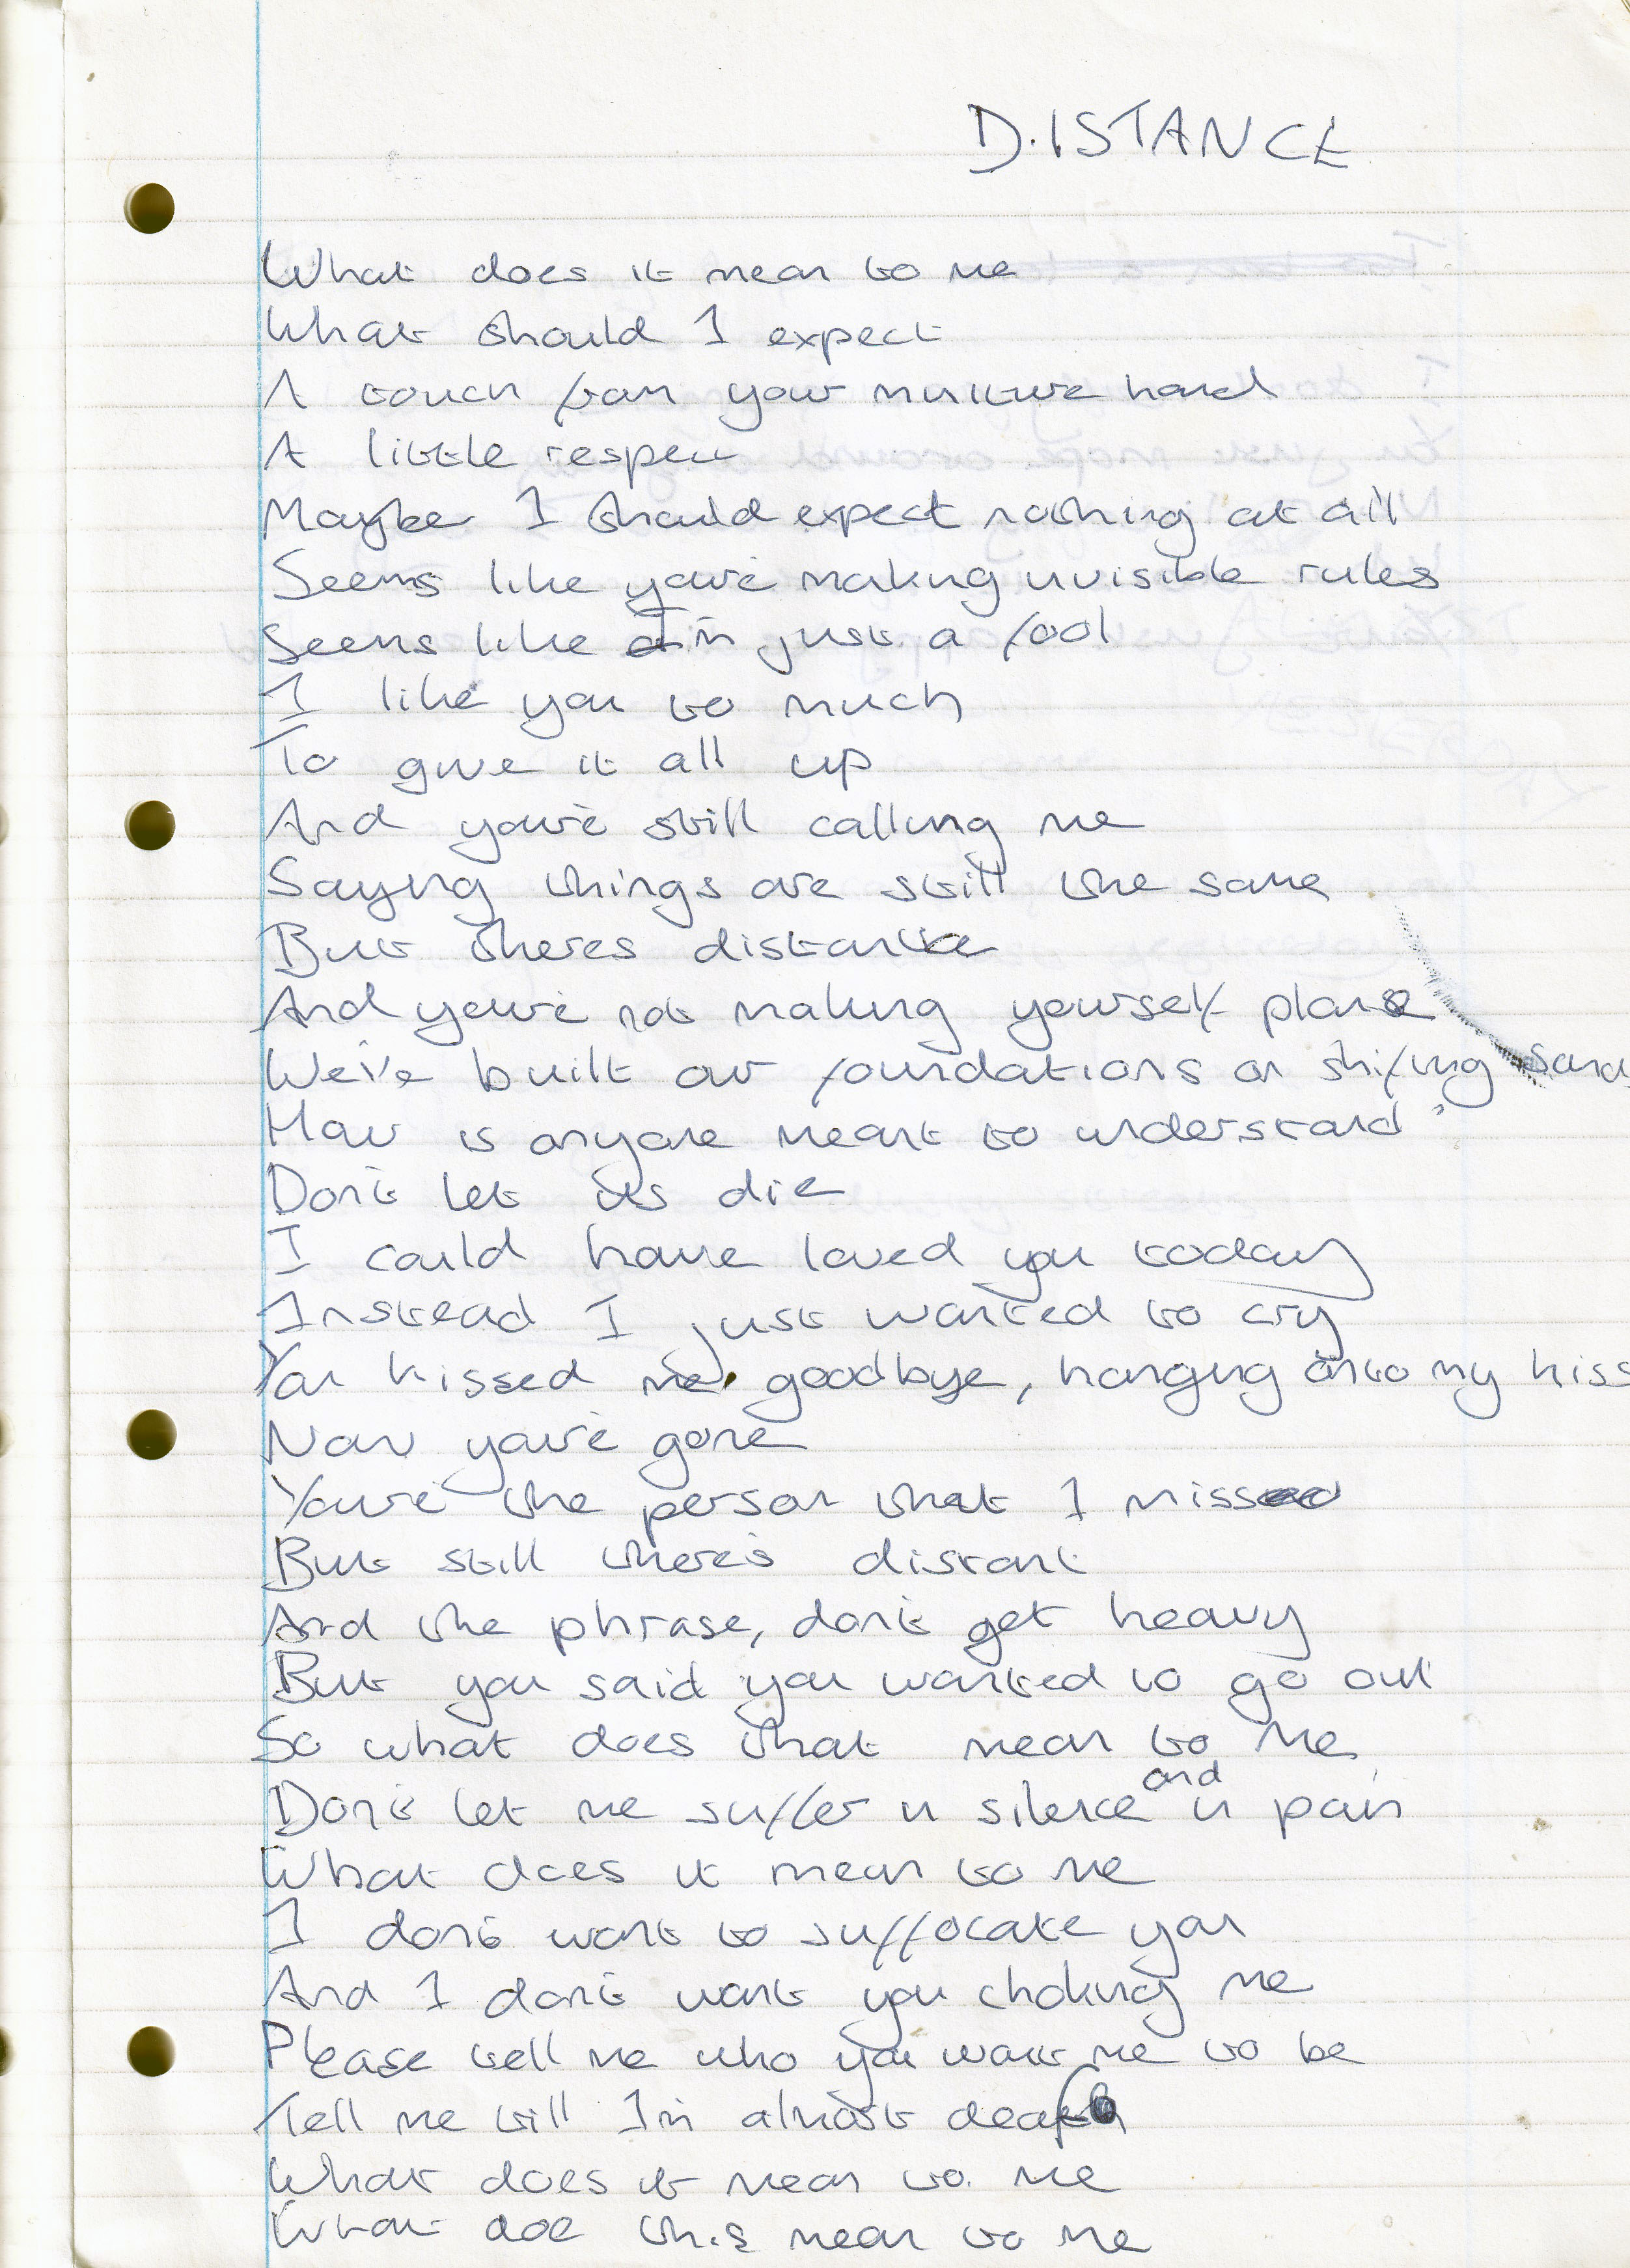 D.ISTANCE
What does it mean to me
What should I expect
A touch from your nurture hand
A little respect
Maybe I should expect nothing at all
Seems like you're making invisible rules
Seems like I'm just a fool
I like you to much
To give it all up
And you're still calling me
Saying things are still the same
But theres distance
And you're not making yourself plane
We've built our foundations on shifing sand
How is anyone meant to understand
Don't let us die
I could have loved you today
Instead I just wanted to cry
You kissed me goodbye, hanging onto my kiss
Now you're gone
You're the person that I miss
But still there's distant
And the phrase, don't get heavy
But you said you wanted to go out
So what does that mean to me
Don't let me suffer in silence and in pain
What does it mean to me
I don't want to suffocate you
And I don't want you choking me
Please tell me who you want me to be
Tell me till I'm almost deaf
What does it mean to me
What doe this mean to me